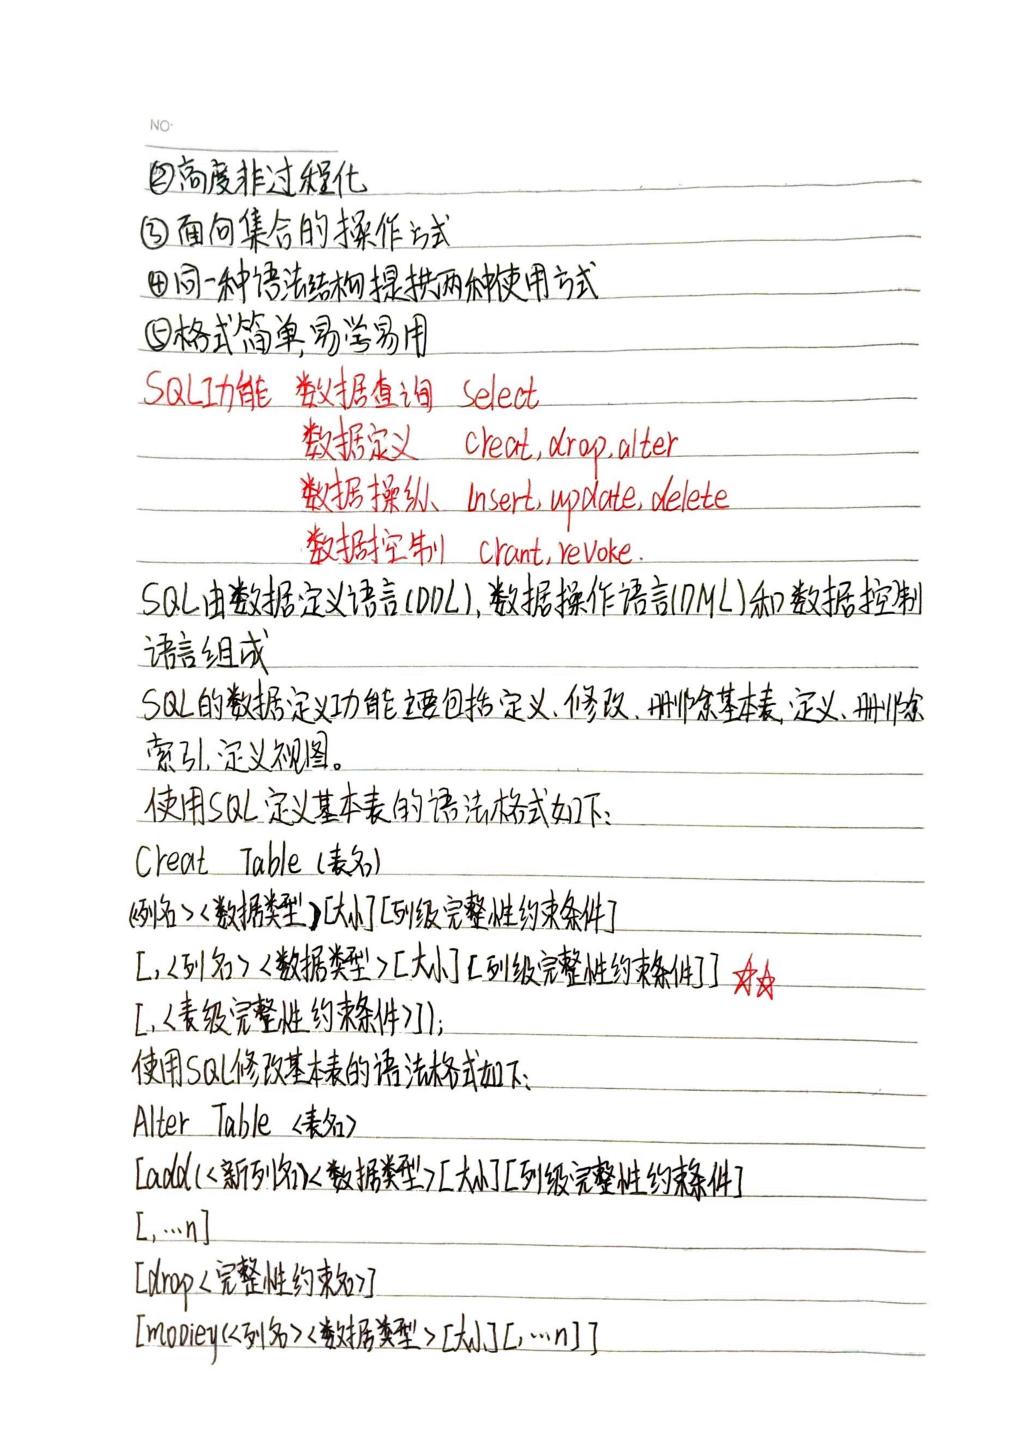 NO.
②高度非过程化
③面向集合的操作方式
④同一种语法结构提拱两种使用方式
⑤格式简单,易学易用
SQL功能 数据查询 Select
数据定义 Creat,drop,alter
数据操纵、Insert,update,delete
数据控制 Crant,revoke.
SQL由数据定义语言(DDL),数据操作语言(DML)和数据控制
语言组成
SQL的数据定义功能主要包括定义、修改、删除基本表,定义、删除
索引,定义视图。
使用SQL定义基本表的语法格式如下:
Creat Table (表名)
(<列名><数据类型>[大小][列级完整性约束条件]
[,<列名><数据类型>[大小][列级完整性约束条件]]
[,<表级完整性约束条件>]);
使用SQL修改基本表的语法格式如下:
Alter Table <表名>
[add(<新列名><数据类型>[大小][列级完整性约束条件]
[,…n]
[drop<完整性约束名>]
[modiey(<列名><数据类型>[大小][,…n]]